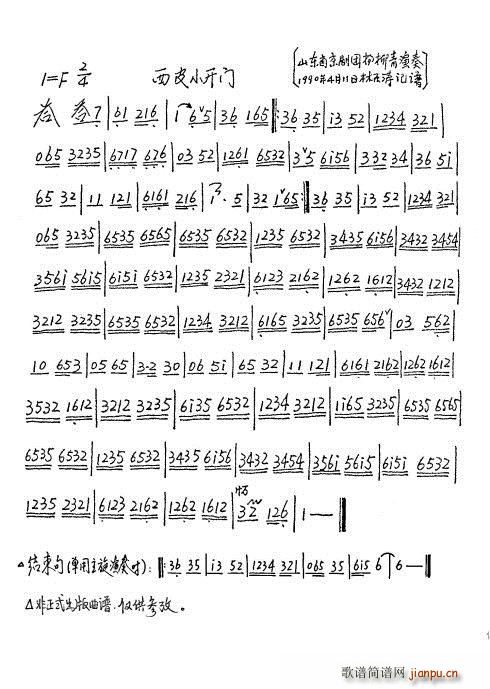 山东省京剧团 柳青演奏
1=F 2/4 西皮小开门 1990年4月11日 林石涛记谱
7 | 61 216 | 1 6 5 | 36 165 ‖: 36 35 | i3 52 | 1234 321 |
065 3235 | 6717 676 | 03 52 | 1261 6532 | 35 6i56 | 332 34 | 36 5i |
65 32 | 11 121 | 6161 216 | 1 · 5 | 32 165 :‖: 36 35 | i3 52 | 1234 321 |
065 3235 | 6535 6565 | 6535 6532 | 1235 6532 | 3435 6i56 | 3432 3454 |
356i 56i5 | 6i5i 6532 | 1235 2321 | 6123 2162 | 1262 1612 | 3432 1212 |
3212 3235 | 6535 6532 | 1234 3212 | 6165 3235 | 6535 656 | 03 562 |
10 653 | 05 65 | 3·2 30 | 06 5i | 65 32 | 11 121 | 6161 2162 | 1262 1612 |
3532 1612 | 3212 3235 | 6i35 6532 | 1234 3212 | 1i65 3235 | 6535 6565 |
6535 6532 | 1235 6532 | 3435 6i56 | 3432 3454 | 356i 56i5 | 6i5i 6532 |
1235 2321 | 6123 2162 | 1262 1612 | 32 126 | 1 — ‖
△结束句(单用主旋演奏时): ‖: 36 35 | i3 52 | 1234 321 | 065 35 | 6i5 6 | 6 — ‖
△非正式出版曲谱.仅供参改。
歌谱简谱网
jianpu.cn